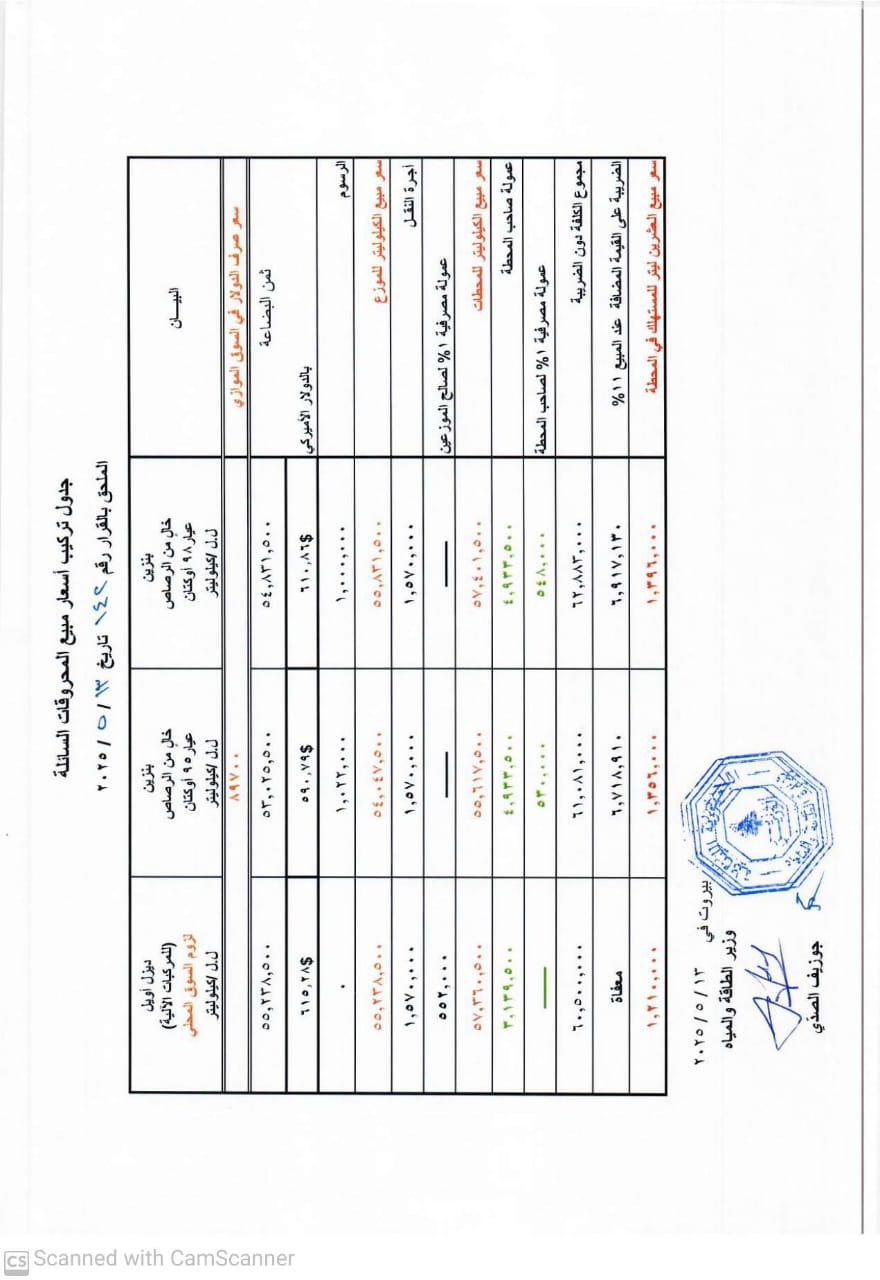 جدول تركيب أسعار مبيع المحروقات السائلة
الملحق بالقرار رقم ١٤٢ تاريخ ١٣ / ٥ / ٢٠٢٥
البيـــان
بنزين
عيار ٩٨ أوكتان
خالٍ من الرصاص
ل.ل/كيلوليتر
بنزين
عيار ٩٥ أوكتان
خالٍ من الرصاص
ل.ل/كيلوليتر
ديزل أويل
(للمركبات الآلية)
لزوم السوق المحلي
ل.ل/كيلوليتر
سعر صرف الدولار في السوق الموازي ٨٩٧٠٠
ثمن البضاعة ٥٤,٨٣١,٥٠٠ ٥٣,٠٢٥,٥٠٠ ٥٥,٢٣٨,٥٠٠
بالدولار الأميركي ٦١٠,٨٦$ ٥٩٠,٧٩$ ٦١٥,٢٨$
الرسوم ١,٠٠٠,٠٠٠ ١,٠٢٢,٠٠٠ ٠
سعر مبيع الكيلوليتر للموزع ٥٥,٨٣١,٥٠٠ ٥٤,٠٤٧,٥٠٠ ٥٥,٢٣٨,٥٠٠
أجرة النقـل ١,٥٧٠,٠٠٠ ١,٥٧٠,٠٠٠ ١,٥٧٠,٠٠٠
عمولة مصرفية ١% لصالح الموزعين — — ٥٥٢,٠٠٠
سعر مبيع الكيلوليتر للمحطات ٥٧,٤٠١,٥٠٠ ٥٥,٦١٧,٥٠٠ ٥٧,٣٦٠,٥٠٠
عمولة صاحب المحطة ٤,٩٣٣,٥٠٠ ٤,٩٣٣,٥٠٠ ٣,١٣٩,٥٠٠
عمولة مصرفية ١% لصاحب المحطة ٥٤٨,٠٠٠ ٥٣٠,٠٠٠ —
مجموع الكلفة دون الضريبة ٦٢,٨٨٣,٠٠٠ ٦١,٠٨١,٠٠٠ ٦٠,٥٠٠,٠٠٠
الضريبة على القيمة المضافة عند المبيع ١١% ٦,٩١٧,١٣٠ ٦,٧١٨,٩١٠ معفاة
سعر مبيع العشرين ليتر للمستهلك في المحطة ١,٣٩٦,٠٠٠ ١,٣٥٦,٠٠٠ ١,٢١٠,٠٠٠
بيروت في ١٣ / ٥ / ٢٠٢٥
وزير الطاقة والمياه
جوزيف الصدّي
CS Scanned with CamScanner